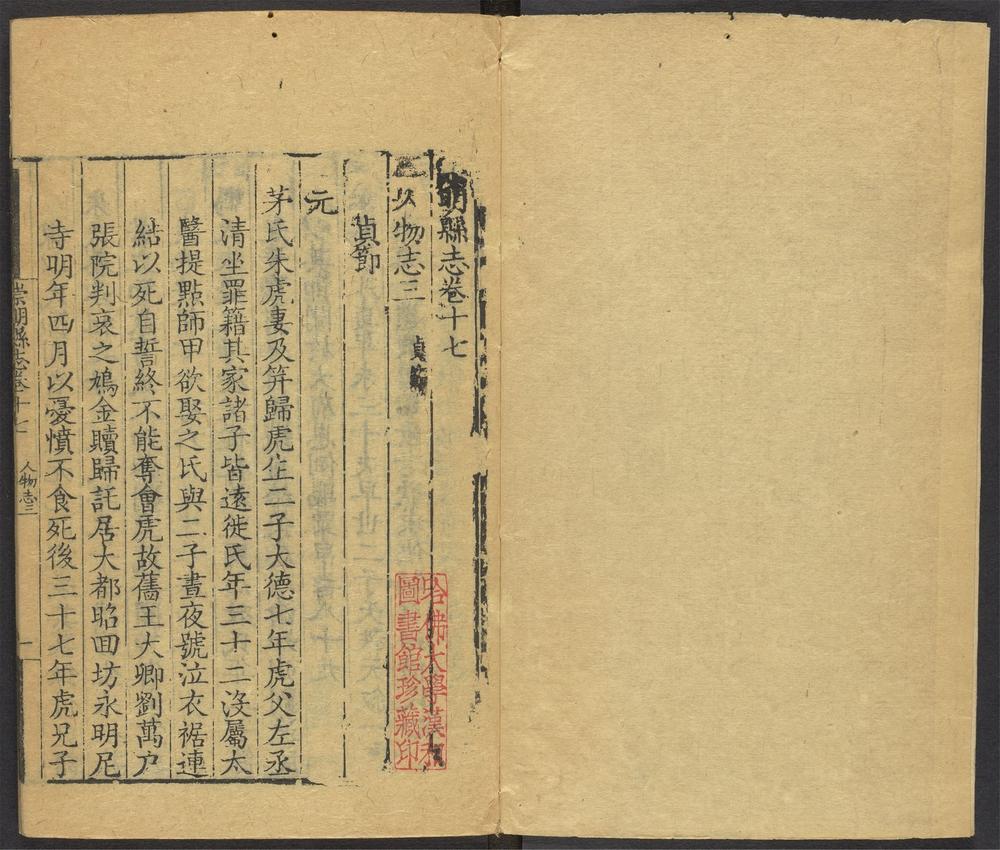 明縣志卷十七
人物志三
貞節
貞節
元
茅氏朱虎妻及筓歸虎生二子大德七年虎父左丞
清坐罪籍其家諸子皆遠徙氏年三十二沒屬太
醫提點師甲欲娶之氏與二子晝夜號泣衣裾連
結以死自誓終不能奪會虎故舊王大卿劉萬户
張院判哀之鳩金贖歸託居大都昭回坊永明尼
寺明年四月以憂憤不食死後三十七年虎兄子
崇明縣志卷十七
人物志三
一
哈佛大學漢和
圖書館珍藏印